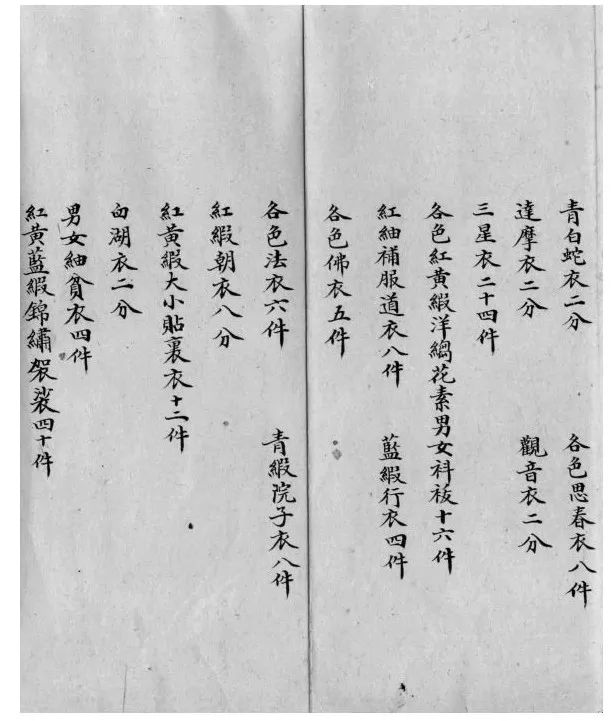 青白蛇衣二分 各色思春衣八件
達摩衣二分 觀音衣二分
三星衣二十四件
各色紅黃緞洋縐花素男女科祓十六件
紅紬補服道衣八件 藍緞行衣四件
各色佛衣五件
各色法衣六件 青緞院子衣八件
紅緞朝衣八分
紅黃緞大小貼裏衣十二件
白湖衣二分
男女紬貧衣四件
紅黃藍緞錦繡袈裟四十件